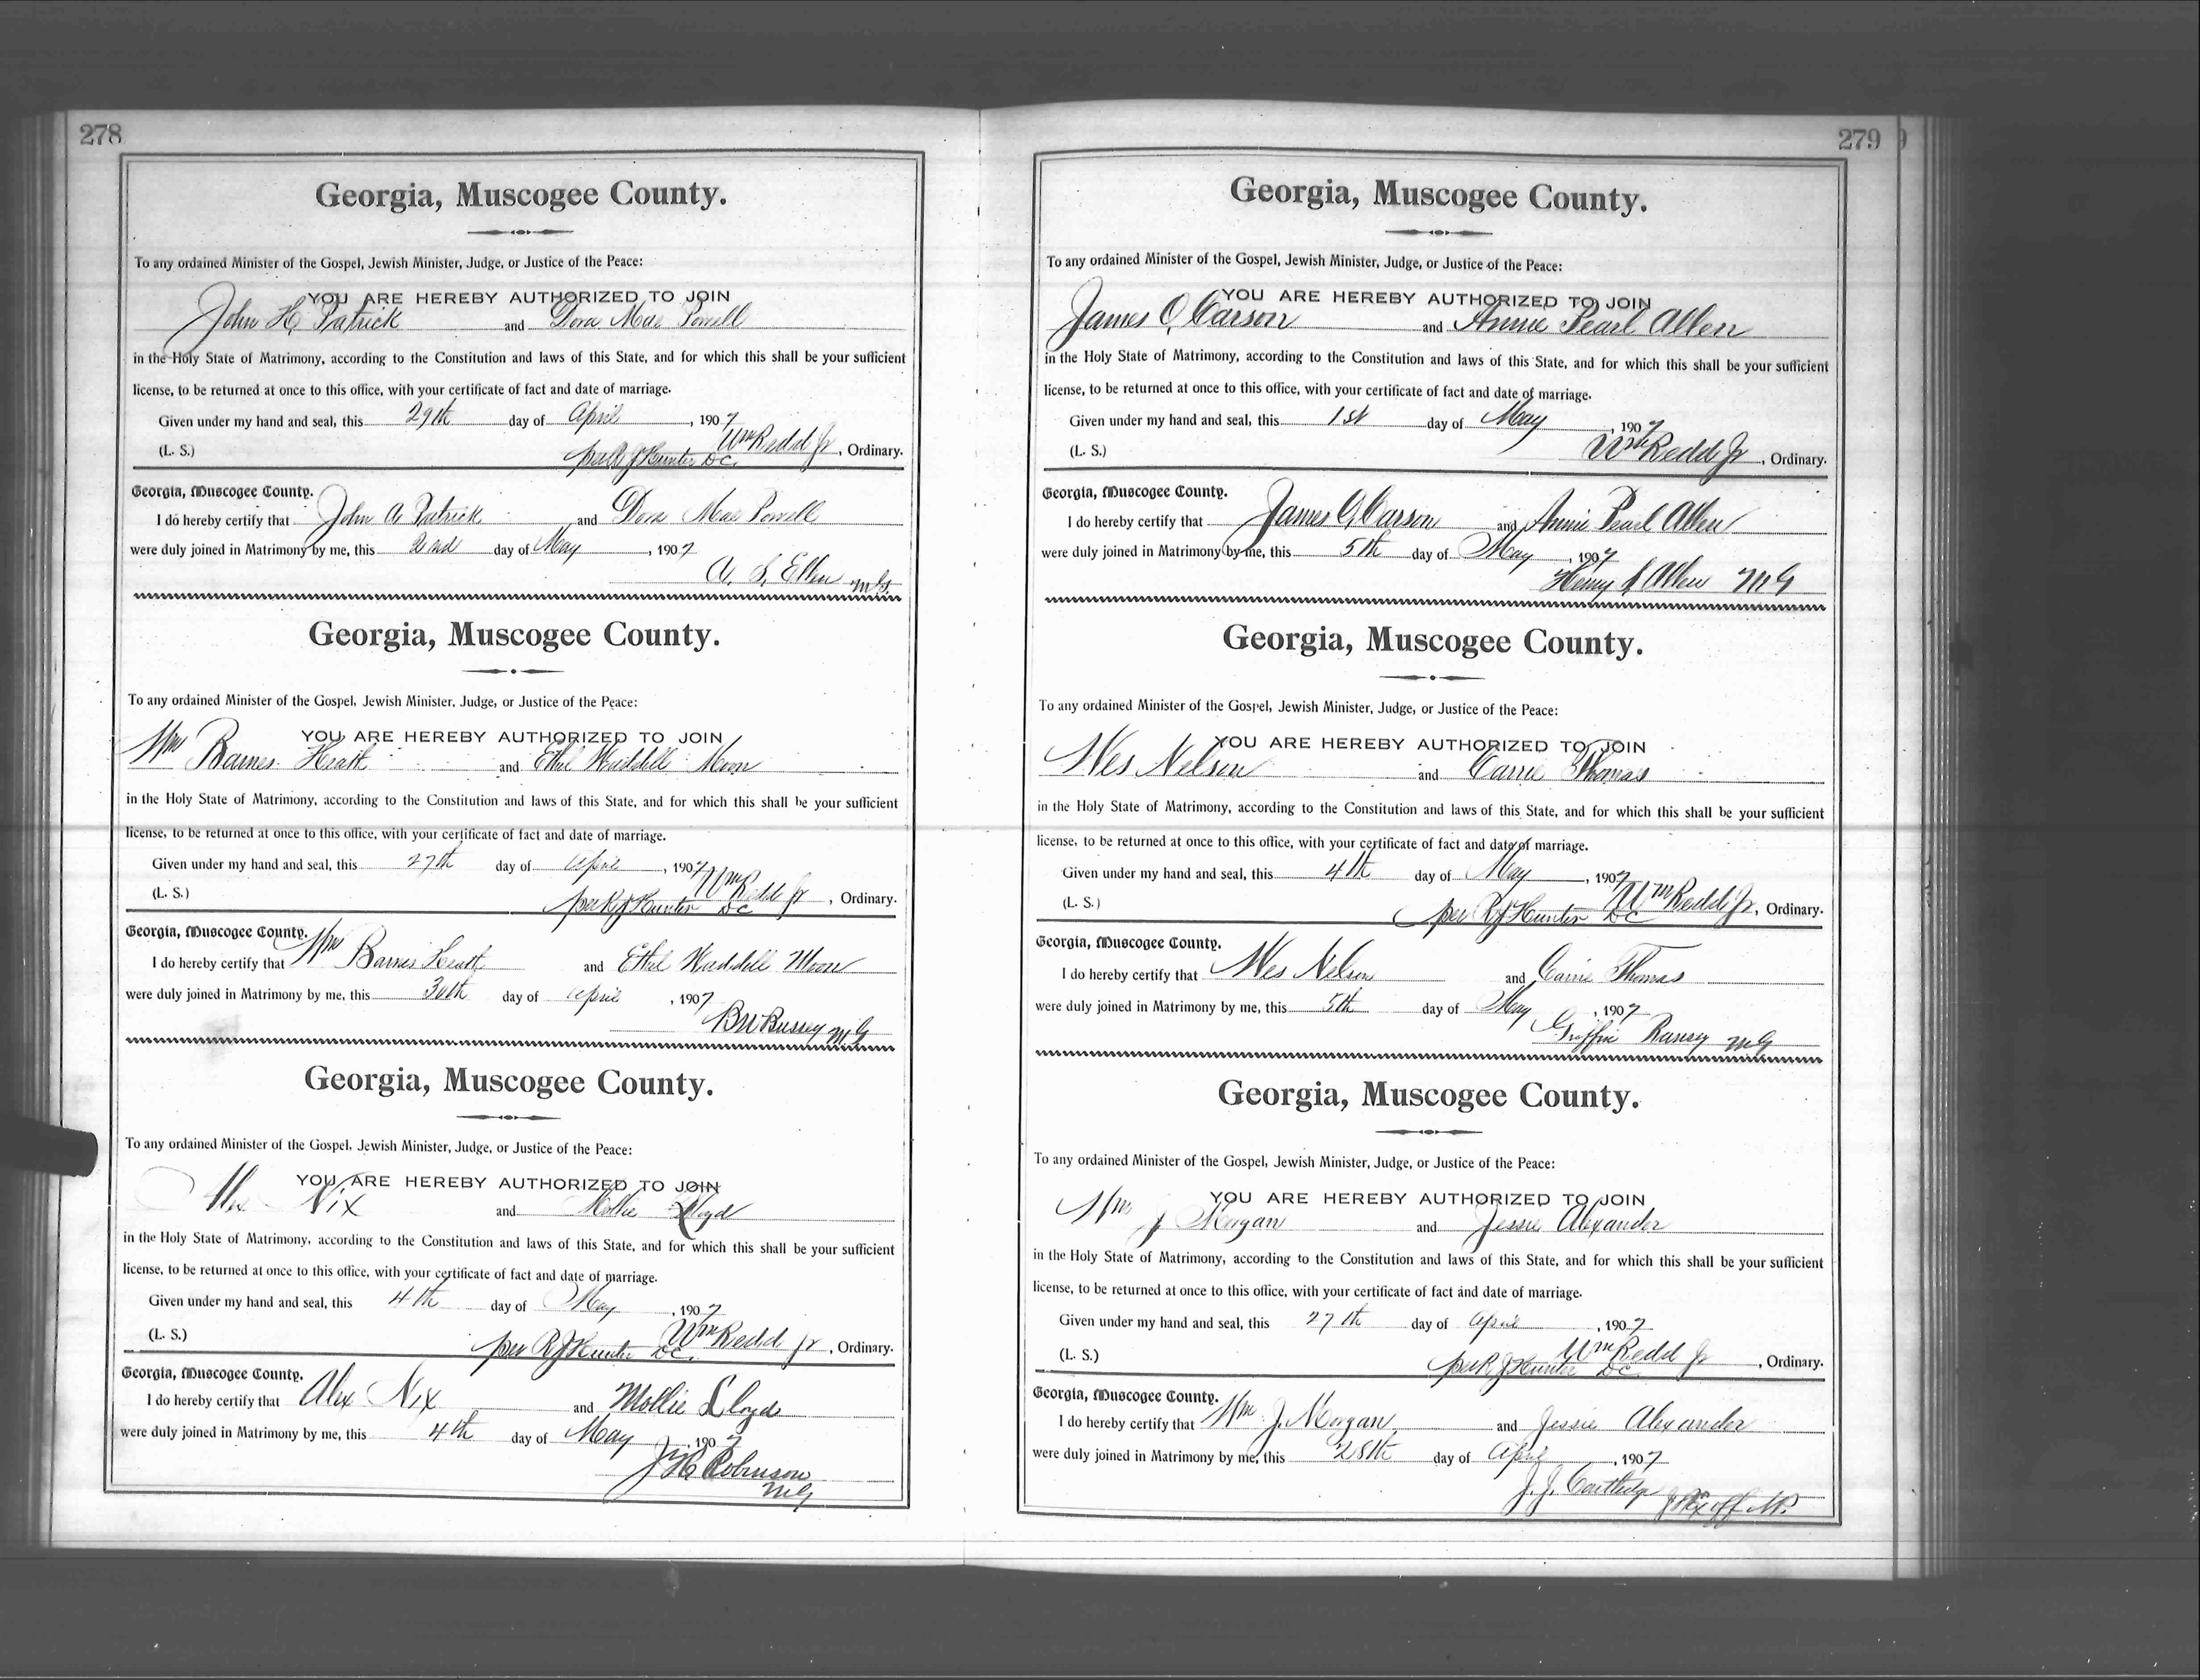 278
Georgia, Muscogee County.
To any ordained Minister of the Gospel, Jewish Minister, Judge, or Justice of the Peace:
YOU ARE HEREBY AUTHORIZED TO JOIN
John H. Patrick and Dora Mae Powell
in the Holy State of Matrimony, according to the Constitution and laws of this State, and for which this shall be your sufficient
license, to be returned at once to this office, with your certificate of fact and date of marriage.
Given under my hand and seal, this 29th day of April, 1907
(L. S.) Wm Redd Jr, Ordinary.
per R J Hunter DC.
Georgia, Muscogee County.
I do hereby certify that John A Patrick and Dora Mae Powell
were duly joined in Matrimony by me, this 2nd day of May, 1907
A. S. Ellen M.G.
Georgia, Muscogee County.
To any ordained Minister of the Gospel, Jewish Minister, Judge, or Justice of the Peace:
YOU ARE HEREBY AUTHORIZED TO JOIN
Wm Barnes Heath and Ethel Waddell Moon
in the Holy State of Matrimony, according to the Constitution and laws of this State, and for which this shall be your sufficient
license, to be returned at once to this office, with your certificate of fact and date of marriage.
Given under my hand and seal, this 27th day of April, 1907
(L. S.) Wm Redd Jr, Ordinary.
per R J Hunter DC
Georgia, Muscogee County.
I do hereby certify that Wm Barnes Heath and Ethel Waddell Moon
were duly joined in Matrimony by me, this 30th day of April, 1907
Bussey M.G
Georgia, Muscogee County.
To any ordained Minister of the Gospel, Jewish Minister, Judge, or Justice of the Peace:
YOU ARE HEREBY AUTHORIZED TO JOIN
Alex Nix and Mollie Lloyd
in the Holy State of Matrimony, according to the Constitution and laws of this State, and for which this shall be your sufficient
license, to be returned at once to this office, with your certificate of fact and date of marriage.
Given under my hand and seal, this 4th day of May, 1907
(L. S.) Wm Redd Jr, Ordinary.
per R J Hunter DC.
Georgia, Muscogee County.
I do hereby certify that Alex Nix and Mollie Lloyd
were duly joined in Matrimony by me, this 4th day of May, 1907
J H Robinson
M.G
279
Georgia, Muscogee County.
To any ordained Minister of the Gospel, Jewish Minister, Judge, or Justice of the Peace:
YOU ARE HEREBY AUTHORIZED TO JOIN
James O. Carson and Annie Pearl Allen
in the Holy State of Matrimony, according to the Constitution and laws of this State, and for which this shall be your sufficient
license, to be returned at once to this office, with your certificate of fact and date of marriage.
Given under my hand and seal, this 1st day of May, 1907
(L. S.) Wm Redd Jr, Ordinary.
Georgia, Muscogee County.
I do hereby certify that James O. Carson and Annie Pearl Allen
were duly joined in Matrimony by me, this 5th day of May, 1907
Henry S Allen M G
Georgia, Muscogee County.
To any ordained Minister of the Gospel, Jewish Minister, Judge, or Justice of the Peace:
YOU ARE HEREBY AUTHORIZED TO JOIN
Wes Nelson and Carrie Thomas
in the Holy State of Matrimony, according to the Constitution and laws of this State, and for which this shall be your sufficient
license, to be returned at once to this office, with your certificate of fact and date of marriage.
Given under my hand and seal, this 4th day of May, 1907
(L. S.) Wm Redd Jr, Ordinary.
per R J Hunter DC
Georgia, Muscogee County.
I do hereby certify that Wes Nelson and Carrie Thomas
were duly joined in Matrimony by me, this 5th day of May, 1907
Griffin Ransey M G
Georgia, Muscogee County.
To any ordained Minister of the Gospel, Jewish Minister, Judge, or Justice of the Peace:
YOU ARE HEREBY AUTHORIZED TO JOIN
Wm J Morgan and Jessie Alexander
in the Holy State of Matrimony, according to the Constitution and laws of this State, and for which this shall be your sufficient
license, to be returned at once to this office, with your certificate of fact and date of marriage.
Given under my hand and seal, this 27th day of April, 1907
(L. S.) Wm Redd Jr, Ordinary.
per R J Hunter DC
Georgia, Muscogee County.
I do hereby certify that Wm J. Morgan and Jessie Alexander
were duly joined in Matrimony by me, this 28th day of April, 1907
J. J. Cartledge